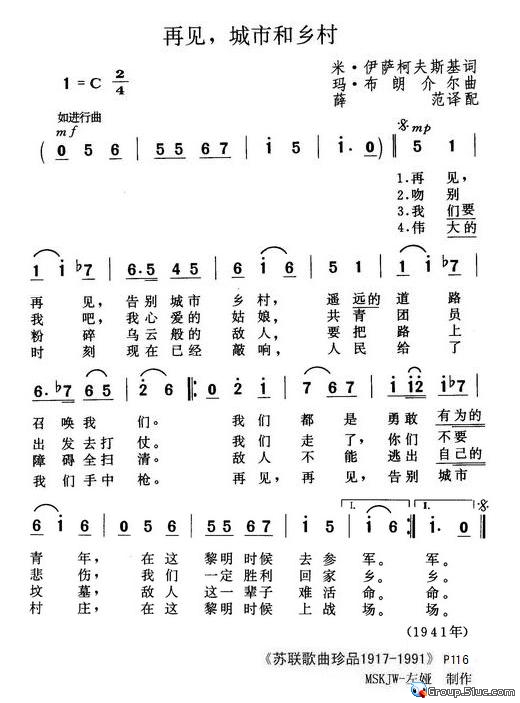 再见，城市和乡村
1=C 2/4
米·伊萨柯夫斯基词
玛·布朗介尔曲
薛范译配
如进行曲
mf
mp
( 0 5 6 | 5 5 6 7 | i 5 | i· 0 ) ‖ 5 1 |
1.再见，
2.吻别
3.我们要
4.伟大的
1 i ♭7 | 6·5 4 5 | 6 i 6 | 5 6 7 | i ♭7 |
再见，告别城市乡村，遥远的道路
我吧，我心爱的姑娘，共青团员
粉碎乌云般的敌人，要把路上
时刻现在已经敲响，人民给了
6·♭7 6 5 | 2 6 :‖: 0 2 i | 7 6 7 | i i2 | i ♭7 |
召唤我们。我们都是勇敢有为的
出发去打仗。我们走了，你们不要
障碍全扫清。敌人不能逃出自己的
我们手中枪。再见，再见，告别城市
6 i 6 | 0 5 6 | 5 5 6 7 | i 5 | i· 0 :‖ i· 0 ‖
I. I.
青年，在这黎明时候去参军。军。
悲伤，我们一定胜利回家乡。乡。
坟墓，敌人这一辈子难活命。命。
村庄，在这黎明时候上战场。场。
(1941年)
《苏联歌曲珍品1917-1991》P116
MSKJW-左娅 制作
Group.51uc.com